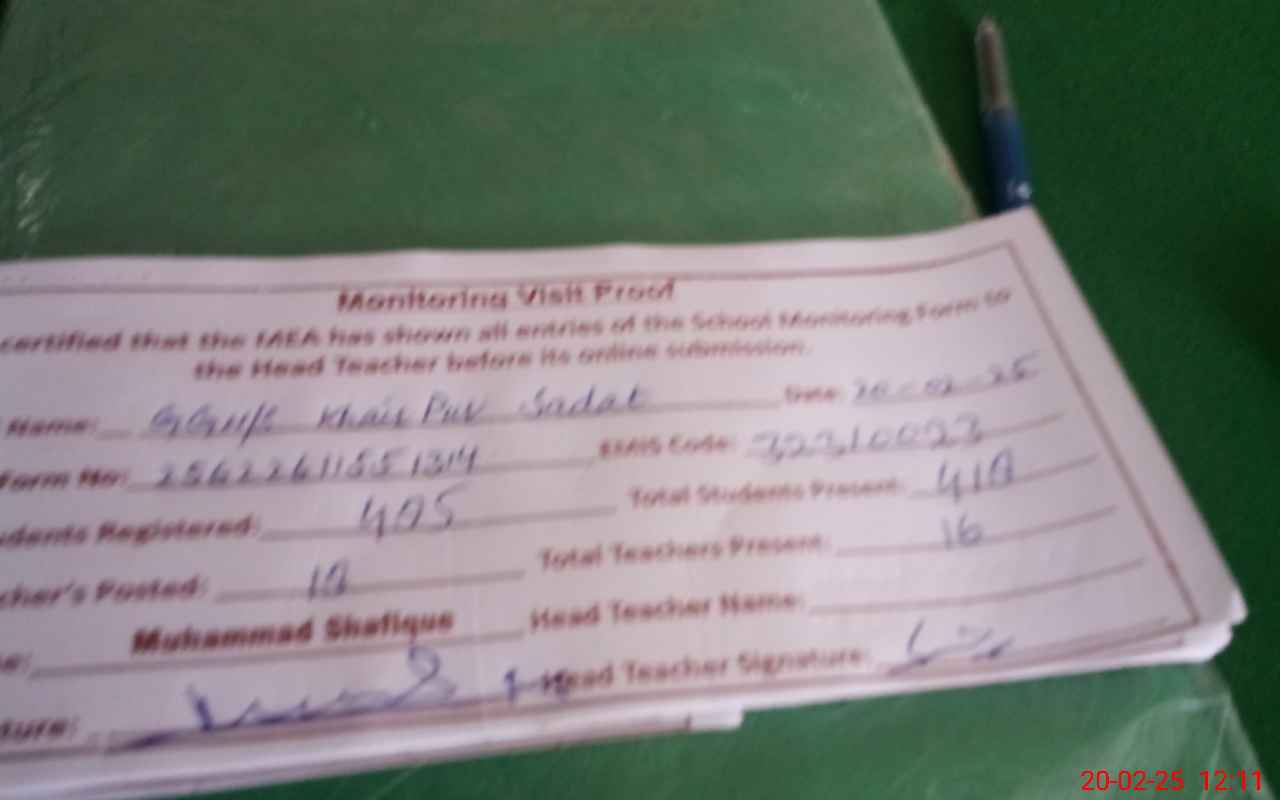 Monitoring Visit Proof
certified that the MEA has shown all entries of the School Monitoring Form to
the Head Teacher before its online submission.
Name: GGHS Khair Pur Sadat Date: 20-02-25
Form No: 25622611551314 EMIS Code: 32310023
dents Registered: 495 Total Students Present: 410
cher's Posted: 18 Total Teachers Present: 16
e: Muhammad Shafique Head Teacher Name:
ture: Head Teacher Signature:
20-02-25 12:11